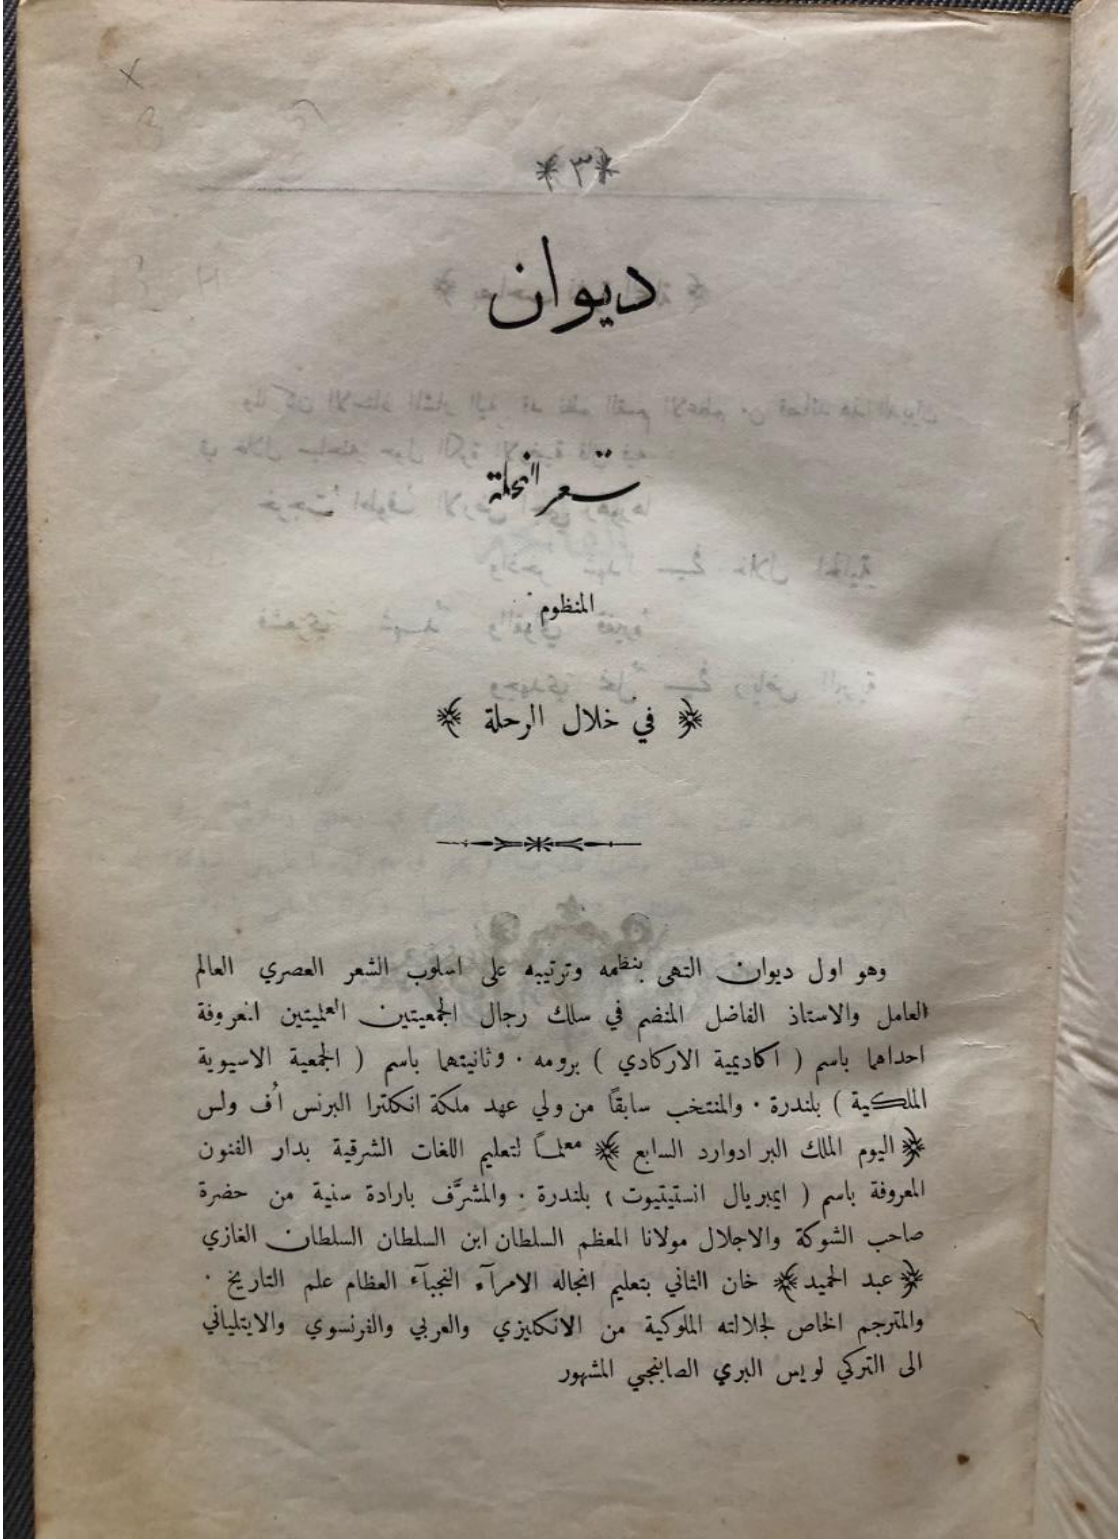 ديوان
شعر النحلة
المنظوم
﴿ في خلال الرحلة ﴾
وهو اول ديوان التهى بنظمه وترتيبه على اسلوب الشعر العصري العالم
العامل والاستاذ الفاضل المنضم في سلك رجال الجمعيتين العلميتين المعروفة
احداهما باسم ( اكاديمية الاركادي ) برومه · وثانيتهما باسم ( الجمعية الاسيوية
الملكية ) بلندرة · والمنتخب سابقًا من ولي عهد ملكة انكلترا البرنس أُف ولس
﴿ اليوم الملك البر ادوارد السابع ﴾ معلمًا لتعليم اللغات الشرقية بدار الفنون
المعروفة باسم ( ايمبريال انستيتيوت ) بلندرة · والمشرَّف بارادة سنية من حضرة
صاحب الشوكة والاجلال مولانا المعظم السلطان ابن السلطان السلطان الغازي
﴿ عبد الحميد ﴾ خان الثاني بتعليم انجاله الامرآء النجبآء العظام علم التاريخ ·
والمترجم الخاص لجلالته الملوكية من الانكليزي والعربي والفرنسوي والايتلياني
الى التركي لويس البري الصابنجي المشهور